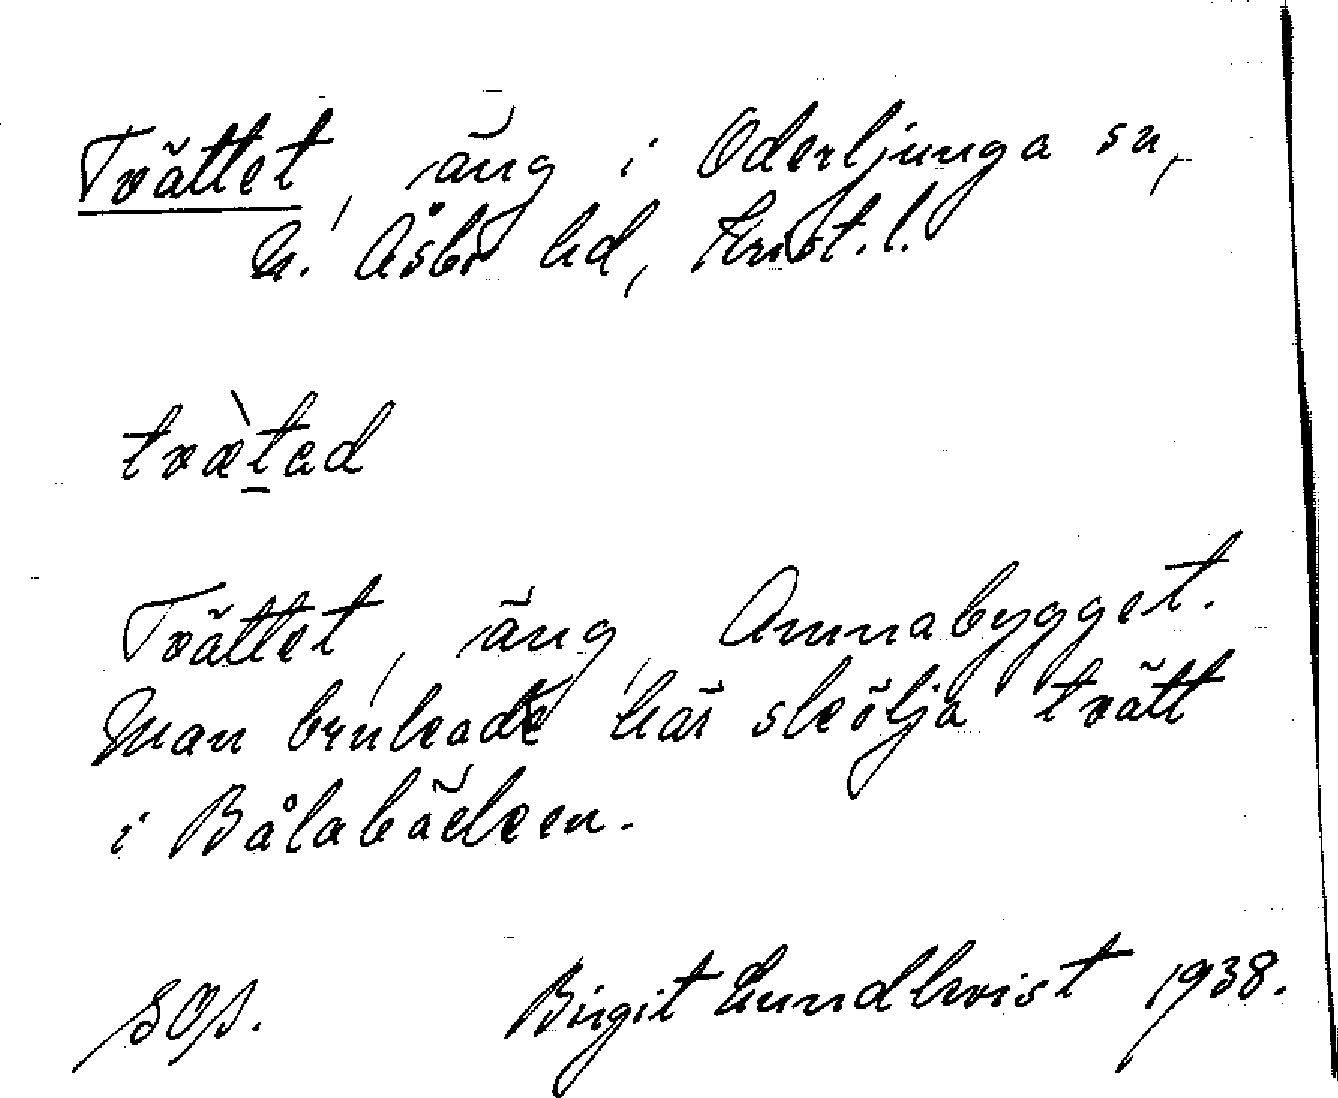 Tvättet, äng i Oderljunga sn,
N. Åsbo hd, Krist. l.
tvætəd
Tvättet, äng, Annabygget.
Man brukade här skölja tvätt
i Bålabäcken.
Birgit Lundkvist 1938.